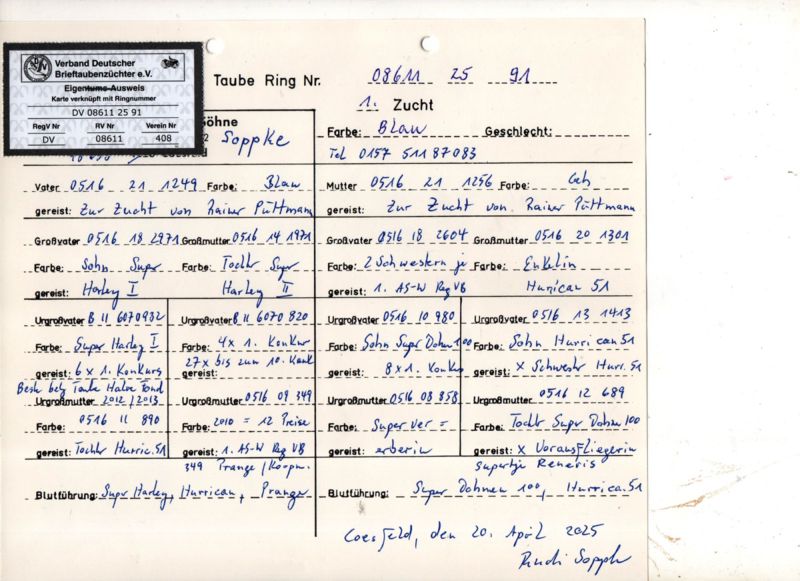 Verband Deutscher
Brieftaubenzüchter e.V.
Eigentums-Ausweis
Karte verknüpft mit Ringnummer
DV 08611 25 91
RegV Nr RV Nr Verein Nr
DV 08611 408
Taube Ring Nr. 08611 25 91
1. Zucht
Söhne
Soppke
Farbe: Blau Geschlecht:
Tel 0157 511 87 083
Vater 0516 21 1249 Farbe: Blau
gereist: Zur Zucht von Rainer Püttmann
Mutter 0516 21 1256 Farbe: Geh
gereist: Zur Zucht von Rainer Püttmann
Großvater 0516 18 2971 Großmutter 0516 14 1971
Farbe: Sohn Super Farbe: Tochtr Super
gereist: Harley I Harley II
Großvater 0516 18 2604 Großmutter 0516 20 1301
Farbe: 2 Schwestern je Farbe: Enkelin
gereist: 1. AS-W Reg VB Hurrican 51
Urgroßvater B 11 6070932 Urgroßvater B 11 6070 820
Farbe: Super Harley I Farbe: 4x 1. Konkur
gereist: 6x 1. Konkurs 27x bis zum 10. Konk
gereist:
Beste belg Taube Halve Fond
Urgroßmutter 2012/2013 Urgroßmutter 0516 09 349
0516 11 890
Farbe: Farbe: 2010 = 12 Preise
gereist: Tochtr Hurric. 51 gereist: 1. AS-W Reg VB
349 Prange/Koopm.
Blutführung: Super Harley, Hurrican, Prange
Urgroßvater 0516 10 980 Urgroßvater 0516 13 1413
Farbe: Sohn Super Dohm 100 Farbe: Sohn Hurrican 51
gereist: 8x1. Konkurs gereist: x Schwester Hurri 51
Urgroßmutter 0516 08 858 Urgroßmutter 0516 12 689
Farbe: Super ver= Farbe: Tochtr Super Dohm 100
gereist: erberin gereist: x Vorausfliegerin
supertje Reneris
Blutführung: Super Dohmen 100, Hurrica. 51
Coesfeld, den 20. April 2025
Rudi Soppke